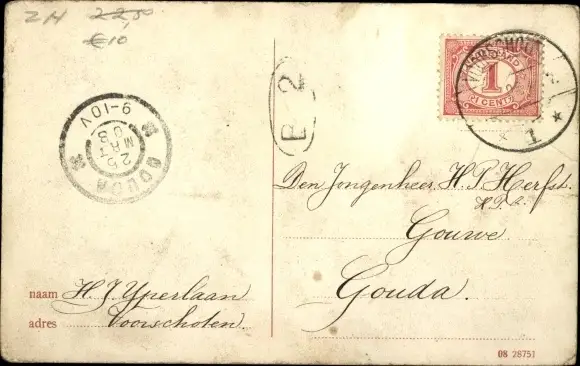 ZH 22,50
€10
NEDERLAND
1
CENT
VOORSCHOTEN
1
GOUDA
25
MRT
08
9-10V
B 2
Den Jongenheer H. P. Herfst.
Gouwe
Gouda.
naam H. J. Yperlaan
adres Voorschoten.
08 28751